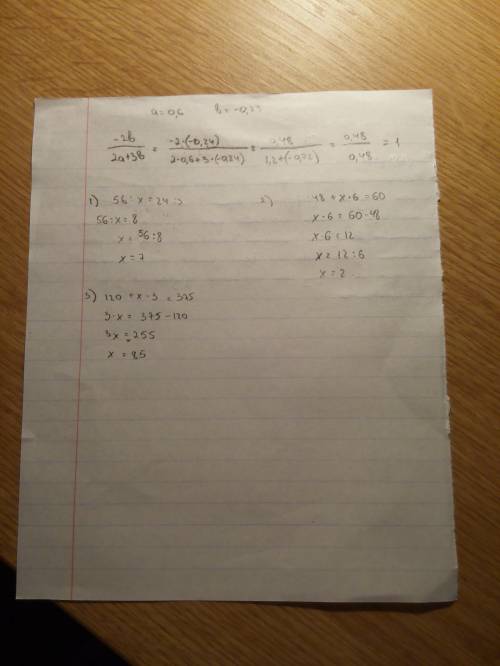 a = 0,6 b = -0,23
-2b / 2a+3b = -2·(-0,24) / 2·0,6+3·(-0,24) = 0,48 / 1,2+(-0,72) = 0,48 / 0,48 = 1
1) 56 : x = 24 : 3
56 : x = 8
x = 56 : 8
x = 7
2) 48 + x·6 = 60
x·6 = 60-48
x·6 = 12
x = 12 : 6
x = 2
3) 120 + x·3 = 375
3·x = 375-120
3x = 255
x = 85